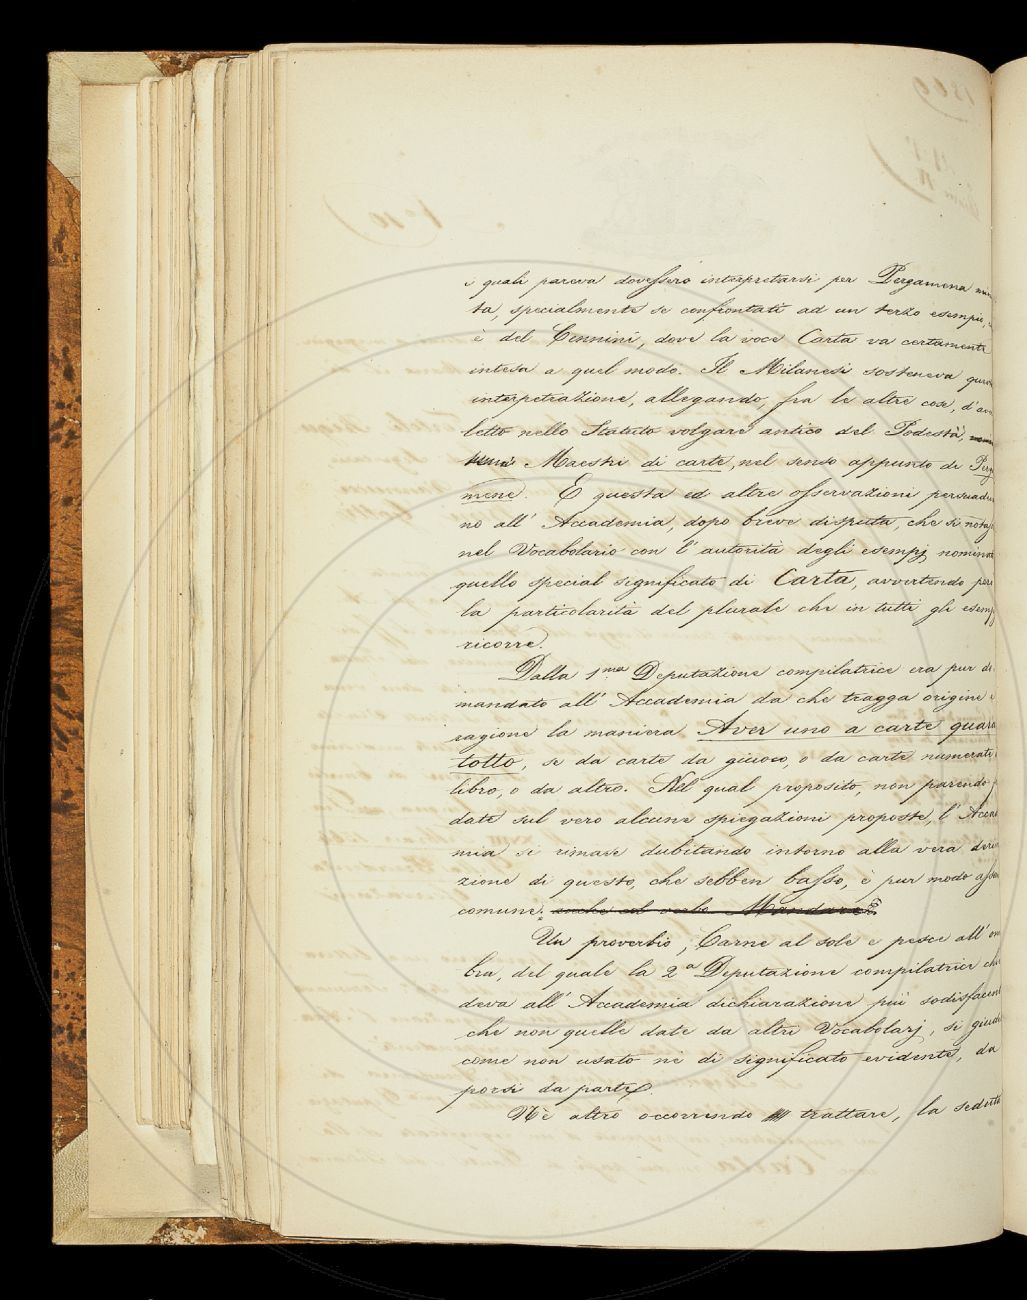 i quali pareva dovessero interpretarsi per Pergamena
ta, specialmente se confrontati ad un terzo esempio,
è del Cennini, dove la voce Carta va certamente
intesa a quel modo. Il Milanesi sosteneva
interpetrazione, allegando, fra le altre cose, d'
letto nello Statuto volgare antico del Podestà,
Maestri di carte, nel senso appunto di Perg
mene. E questa ed altre osservazioni persuade
no all' Accademia, dopo breve disputa, che si
nel Vocabolario con l' autorità degli esempj nomina
quello special significato di Carta, avvertendo però
la particolarità del plurale che in tutti gli esemp
ricorre.
Dalla 1.ma Deputazione compilatrice era pur di
mandato all' Accademia da che tragga origine e
ragione la maniera Aver uno a carte quara
totto, se da carte da giuoco, o da carte numerate
libro, o da altro. Nel qual proposito, non parendo
date sul vero alcune spiegazioni proposte, l' Accade
mia si rimase dubitando intorno alla vera deriva
zione di questo, che sebben basso, è pur modo assai
comune. anche col verbo Mandare
Un proverbio, Carne al sole e pesce all' om
bra, del quale la 2a Deputazione compilatrice chie
deva all' Accademia dichiarazione più sodisfacente
che non quelle date da altri Vocabolarj, si giudi
come non usato nè di significato evidente, da
porsi da parte.
Nè altro occorrendo trattare, la seduta